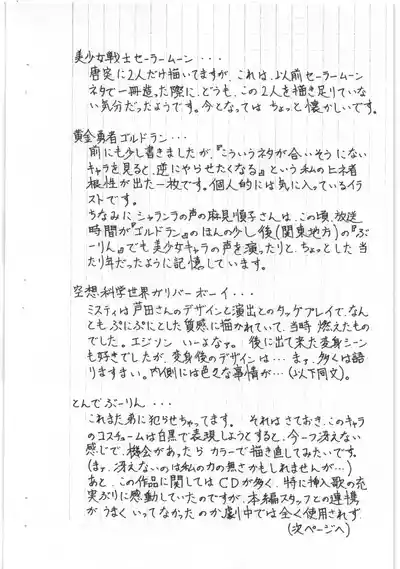 美少女戦士セーラームーン・・・
唐突に2人だけ描いてますが、これは、以前セーラームーン
ネタで一冊造った際に、どうも、この2人を描き足りていな
い気分だったようです。今となっては ちょっと懐かしいです。
黄金勇者ゴルドラン・・・
前にも少し書きましたが、『こういうネタが合いそうにない
キャラを見ると、逆にやらせたくなる』という私のヒネ者
根性が出た一枚です。個人的には気に入っているイラ
ストです。
ちなみにシャランラの声の麻見順子さんは、この頃、放送
時間が『ゴルドラン』のほんの少し後(関東地方)の『ぶ
ーりん』でも美少女キャラの声を演ったりと、ちょっとした 当
たり年だったように記憶しています。
空想科学世界ガリバーボーイ・・・
ミスティは芦田さんのデザインと演出とのタッグプレイで、なん
とも、ぷにぷにとした質感に描かれていて、当時 燃えたもの
でした。エジソン いーよなァ。 後に出て来た変身シーン
も好きでしたが、変身後のデザインは…まァ、多くは語
りますまい。内側には色々な事情が…(以下同文)。
とんでぶーりん ・・・
これまた弟に犯らせちゃってます。 それはさておき、このキャラ
のコスチュームは白黒で表現しようとすると、今一つ冴えない
感じで、機会があったら カラーで描き直してみたいです。
(まァ、冴えないのは私の力の無さかもしれませんが…)
あと、この作品に関してはCDが多く、特に挿入歌の充
実ぶりに感動していたのですが、本編スタッフとの連携
がうまくいってなかったのか劇中では全く使用されず、
(次ページへ)